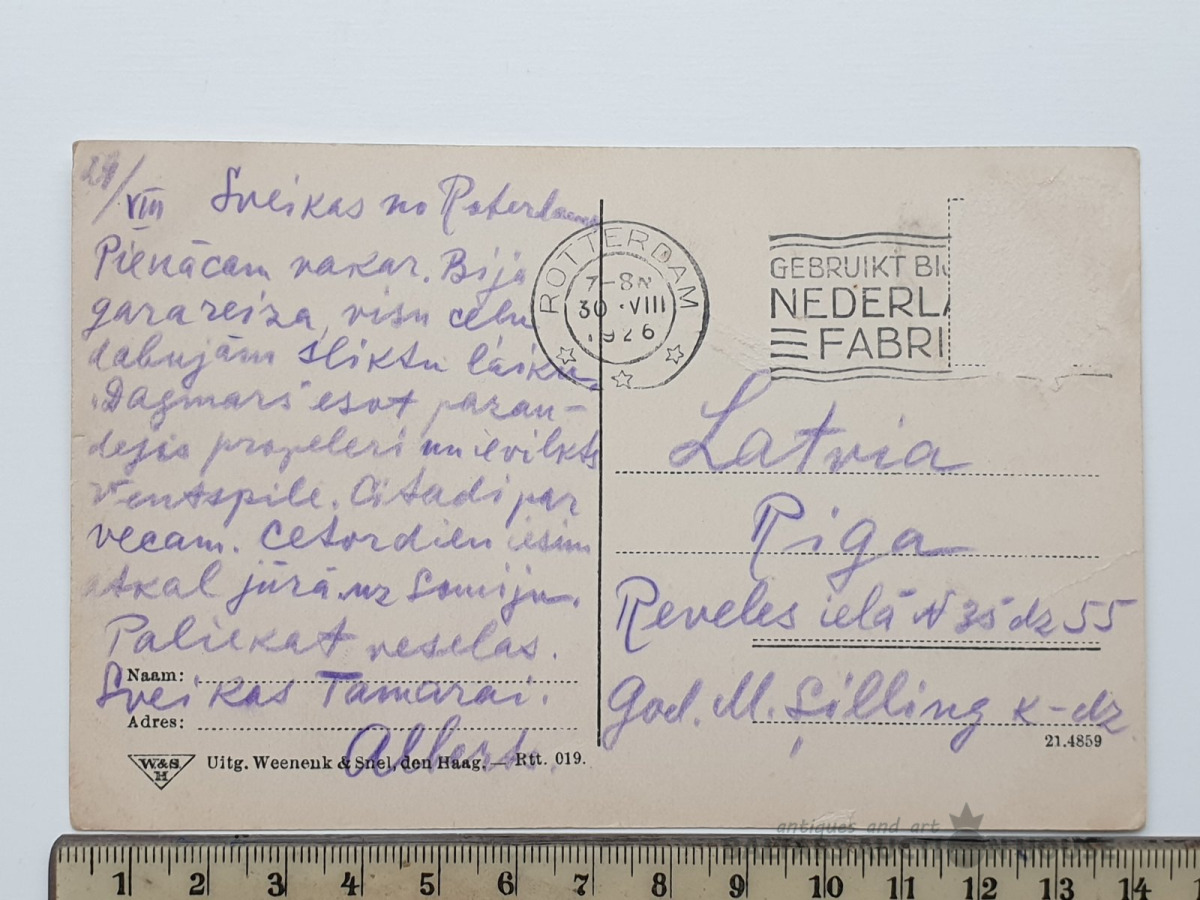 29/VIII Sveikas no Roterdamas
Pienācam vakar. Bija
garareiza, visu celu
dabujām sliktu laiku.
"Dagmars" esot pazau-
dejis propeleri un ievilkts
Ventspile. Citadi par
vecam. Cetordien iesim
atkal jūrā uz Somiju.
Paliekat veselas.
Sveikas Tamarai.
Albert.
Naam:
Adres:
W&S
H
Uitg. Weenenk & Snel, den Haag. — Rtt. 019.
ROTTERDAM
7-8N
30 VIII
1926
GEBRUIKT BIJ
NEDERLA
FABRI
Latvia
Riga
Reveles ielā N 35 dz 55
God. M. Šilling k-dz
21.4859
antiques and art
1 2 3 4 5 6 7 8 9 10 11 12 13 14